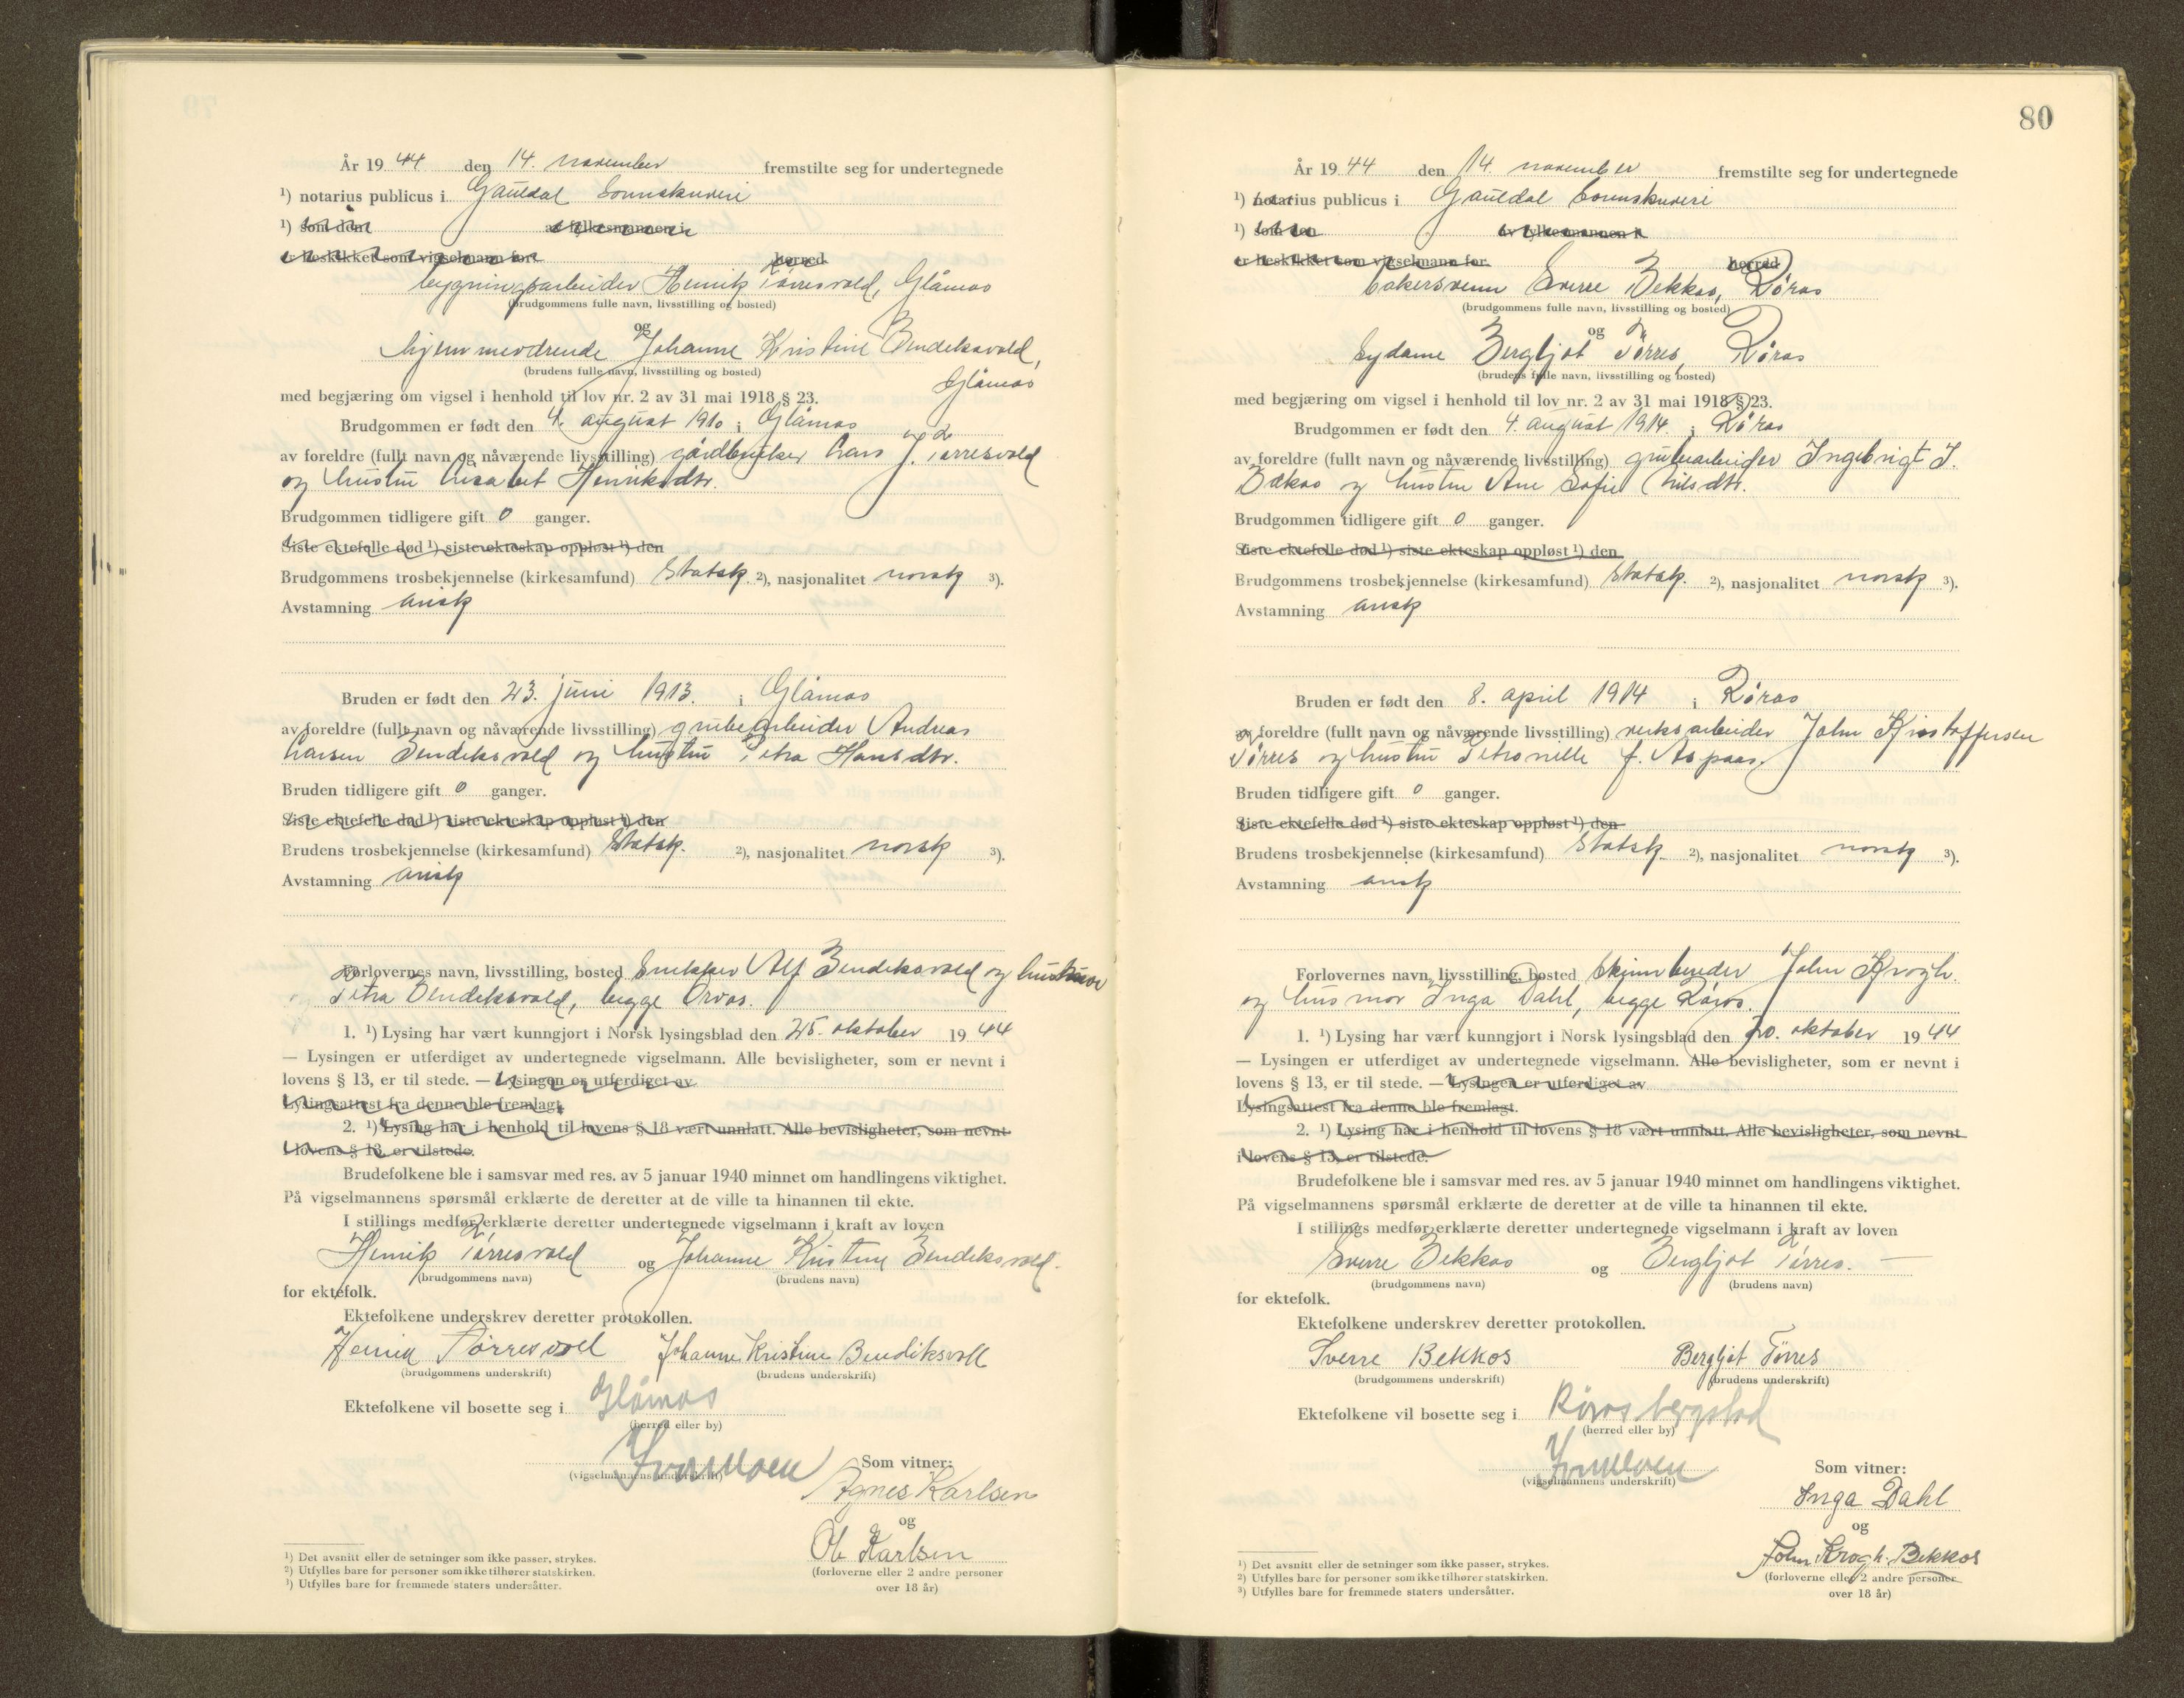 År 1944 den 14. november fremstilte seg for undertegnede
¹) notarius publicus i Gauldal Sorenskriveri
¹) som den av fylkesmannen i
er beskikket som vigselmann for herred
bygningsarbeider Henrik Tørresvold, Glåmos
(brudgommens fulle navn, livsstilling og bosted)
og
hjemmeværende Johanne Kristine Bendiksvold,
(brudens fulle navn, livsstilling og bosted) Glåmos
med begjæring om vigsel i henhold til lov nr. 2 av 31 mai 1918 § 23.
Brudgommen er født den 4. august 1910 i Glåmos
av foreldre (fullt navn og nåværende livsstilling) gårdbruker Lars J. Tørresvold
og hustru Lisabet Henriksdtr.
Brudgommen tidligere gift 0 ganger.
Siste ektefelle død ¹) siste ekteskap oppløst ¹) den
Brudgommens trosbekjennelse (kirkesamfund) Statsk. ²), nasjonalitet norsk ³).
Avstamning arisk
Bruden er født den 23. juni 1913. i Glåmos
av foreldre (fullt navn og nåværende livsstilling) grubearbeider Andreas
Larsen Bendiksvold og hustru Petra Hansdtr.
Bruden tidligere gift 0 ganger.
Siste ektefelle død ¹) siste ekteskap oppløst ¹) den
Brudens trosbekjennelse (kirkesamfund) Statsk. ²), nasjonalitet norsk ³).
Avstamning arisk
Forlovernes navn, livsstilling, bosted Snekker Alf Bendiksvold og
Petra Bendiksvold, begge Orvos.
1. ¹) Lysing har vært kunngjort i Norsk lysingsblad den 25. oktober 1944
— Lysingen er utferdiget av undertegnede vigselmann. Alle bevisligheter, som er nevnt i
lovens § 13, er til stede. — Lysingen er utferdiget av
Lysingsattest fra denne ble fremlagt.
2. ¹) Lysing har i henhold til lovens § 18 vært unnlatt. Alle bevisligheter, som nevnt
i lovens § 13, er tilstede.
Brudefolkene ble i samsvar med res. av 5 januar 1940 minnet om handlingens viktighet.
På vigselmannens spørsmål erklærte de deretter at de ville ta hinannen til ekte.
I stillings medfør erklærte deretter undertegnede vigselmann i kraft av loven
Henrik Tørresvold og Johanne Kristine Bendiksvold.
(brudgommens navn) (brudens navn)
for ektefolk.
Ektefolkene underskrev deretter protokollen.
Henrik Tørresvoll Johanne Kristine Bendiksvoll
(brudgommens underskrift) (brudens underskrift)
Ektefolkene vil bosette seg i Glåmos
(herred eller by)
(vigselmannens underskrift) Som vitner:
Agnes Karlsen
og
Ole Karlsen
(forloverne eller 2 andre personer
over 18 år)
¹) Det avsnitt eller de setninger som ikke passer, strykes.
²) Utfylles bare for personer som ikke tilhører statskirken.
³) Utfylles bare for fremmede staters undersåtter.
80
År 1944 den 14. november fremstilte seg for undertegnede
¹) notarius publicus i Gauldal Sorenskriveri
¹) som den av fylkesmannen i
er beskikket som vigselmann for herred
bakersvenn Sverre Bekkos, Røros
(brudgommens fulle navn, livsstilling og bosted)
og
sydame Bergljot Tørres, Røros
(brudens fulle navn, livsstilling og bosted)
med begjæring om vigsel i henhold til lov nr. 2 av 31 mai 1918 § 23.
Brudgommen er født den 4. august 1914. i Røros
av foreldre (fullt navn og nåværende livsstilling) grubearbeider Ingebrigt I.
Bekos og hustru Ane Sofie Nilsdtr.
Brudgommen tidligere gift 0 ganger.
Siste ektefelle død ¹) siste ekteskap oppløst ¹) den
Brudgommens trosbekjennelse (kirkesamfund) Statsk. ²), nasjonalitet norsk ³).
Avstamning arisk
Bruden er født den 8. april 1914 i Røros
av foreldre (fullt navn og nåværende livsstilling) verksarbeider John Kristoffersen
Tørres og hustru Petronille f. Aspaas.
Bruden tidligere gift 0 ganger.
Siste ektefelle død ¹) siste ekteskap oppløst ¹) den
Brudens trosbekjennelse (kirkesamfund) Statsk. ²), nasjonalitet norsk ³).
Avstamning arisk
Forlovernes navn, livsstilling, bosted Skinnbereder John Krogh.
og husmor Inga Dahl, begge Røros.
1. ¹) Lysing har vært kunngjort i Norsk lysingsblad den 20. oktober 1944
— Lysingen er utferdiget av undertegnede vigselmann. Alle bevisligheter, som er nevnt i
lovens § 13, er til stede. — Lysingen er utferdiget av
Lysingsattest fra denne ble fremlagt.
2. ¹) Lysing har i henhold til lovens § 18 vært unnlatt. Alle bevisligheter, som nevnt
i lovens § 13, er tilstede.
Brudefolkene ble i samsvar med res. av 5 januar 1940 minnet om handlingens viktighet.
På vigselmannens spørsmål erklærte de deretter at de ville ta hinannen til ekte.
I stillings medfør erklærte deretter undertegnede vigselmann i kraft av loven
Sverre Bekkos og Bergljot Tørres. —
(brudgommens navn) (brudens navn)
for ektefolk.
Ektefolkene underskrev deretter protokollen.
Sverre Bekkos Bergljot Tørres
(brudgommens underskrift) (brudens underskrift)
Ektefolkene vil bosette seg i Røros bergstad
(herred eller by)
(vigselmannens underskrift) Som vitner:
Inga Dahl
og
John Krogh. Bekkos
(forloverne eller 2 andre personer
over 18 år)
¹) Det avsnitt eller de setninger som ikke passer, strykes.
²) Utfylles bare for personer som ikke tilhører statskirken.
³) Utfylles bare for fremmede staters undersåtter.